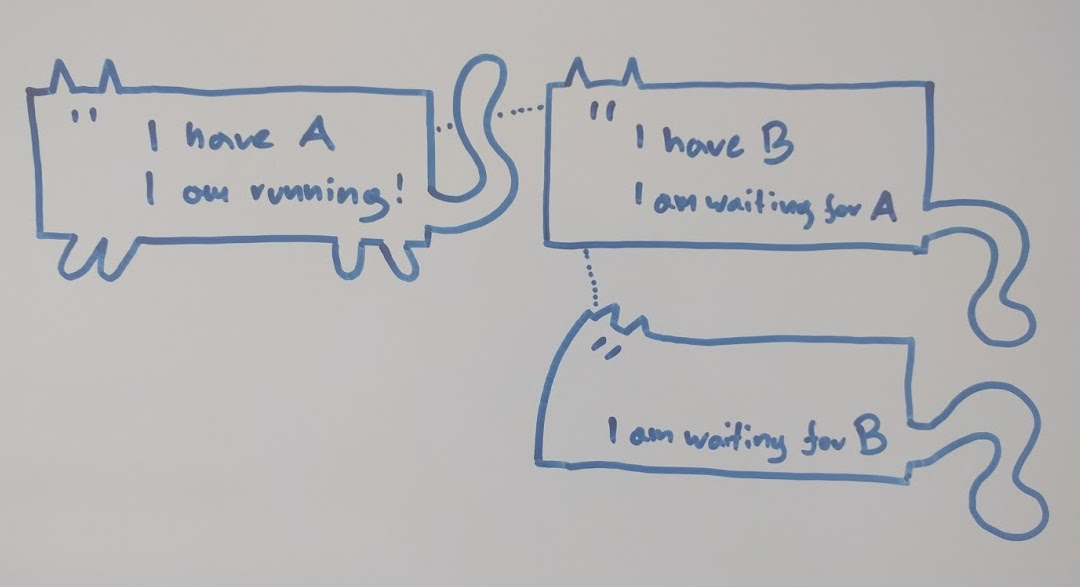 I have A
I am running!
I have B
I am waiting for A
I am waiting for B